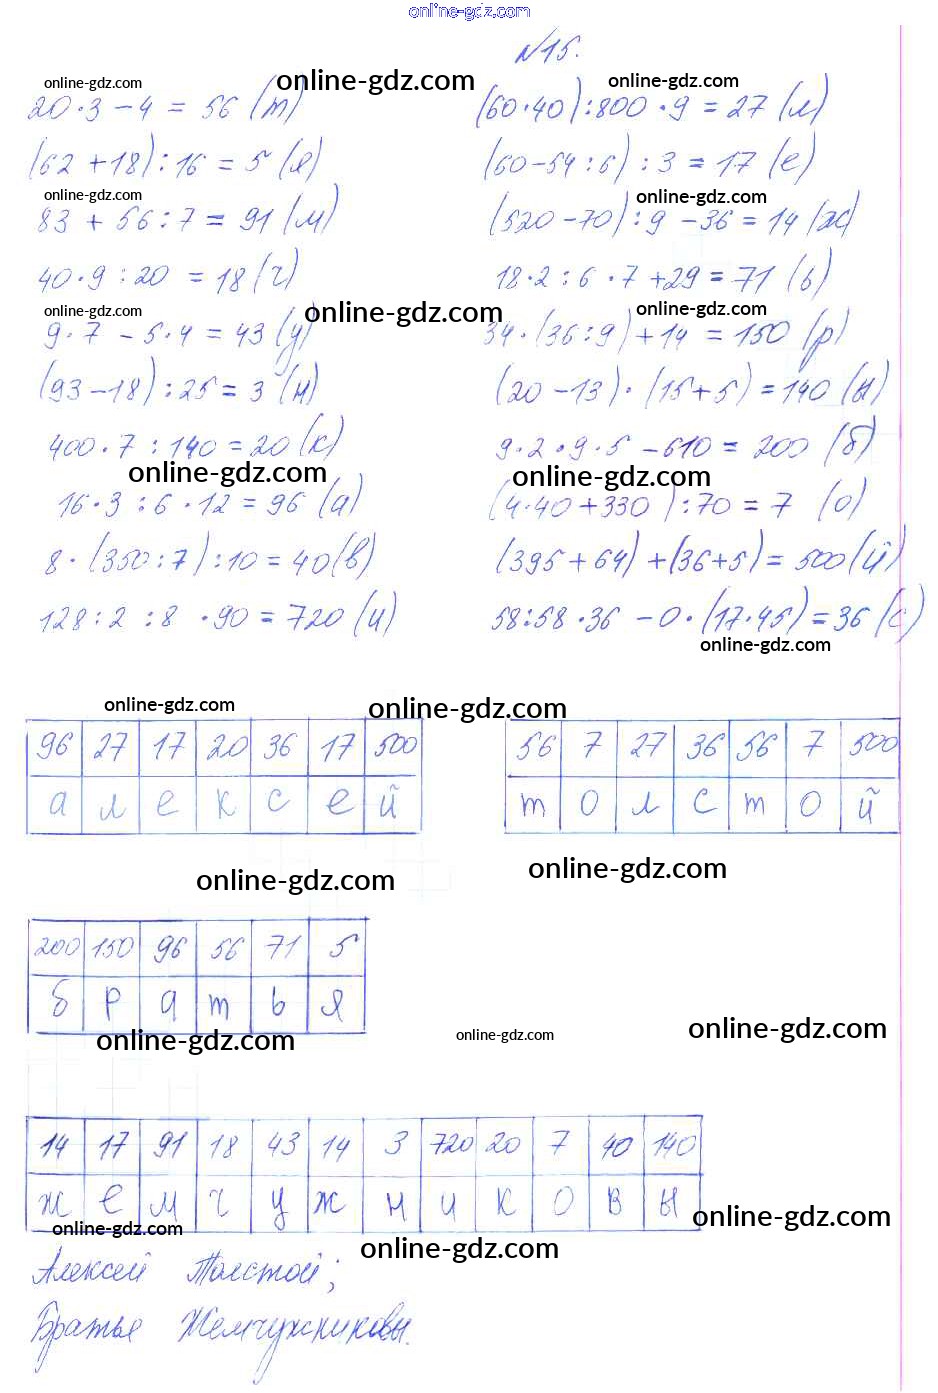 online-gdz.com
№15.
online-gdz.com online-gdz.com online-gdz.com
20·3-4=56 (т) (60·40):800·9=27 (л)
(62+18):16=5 (я) (60-54:6):3=17 (е)
online-gdz.com online-gdz.com
83+56:7=91 (м) (520-70):9-36=14 (ж)
40·9:20=18 (ч) 18·2:6·7+29=71 (ь)
online-gdz.com online-gdz.com online-gdz.com
9·7-5·4=43 (у) 34·(36:9)+14=150 (р)
(93-18):25=3 (н) (20-13)·(15+5)=140 (ы)
400·7:140=20 (к) 9·2·9·5-610=200 (б)
online-gdz.com online-gdz.com
16·3:6·12=96 (а) (4·40+330):70=7 (о)
8·(350:7):10=40 (в) (395+64)+(36+5)=500 (й)
128:2:8·90=720 (и) 58:58·36-0·(17·45)=36 (с)
online-gdz.com
online-gdz.com online-gdz.com
96 27 17 20 36 17 500 56 7 27 36 56 7 500
а л е к с е й т о л с т о й
online-gdz.com online-gdz.com
200 150 96 56 71 5
б р а т ь я
online-gdz.com online-gdz.com online-gdz.com
14 17 91 18 43 14 3 720 20 7 40 140
ж е м ч у ж н и к о в ы
online-gdz.com online-gdz.com online-gdz.com
Алексей Толстой;
Братья Жемчужниковы.